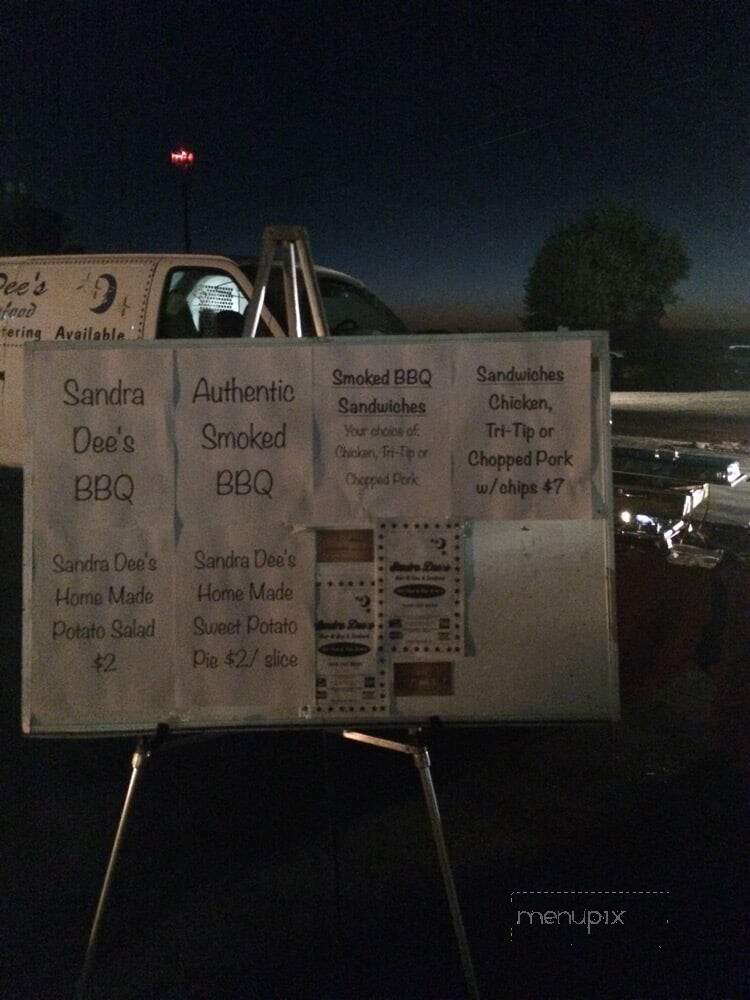 Dee's
Available
Sandra
Dee's
BBQ
Authentic
Smoked
BBQ
Smoked BBQ
Sandwiches
Your choice of:
Chicken, Tri-Tip or
Chopped Pork
Sandwiches
Chicken,
Tri-Tip or
Chopped Pork
w/chips $7
Sandra Dee's
Home Made
Potato Salad
$2
Sandra Dee's
Home Made
Sweet Potato
Pie $2/ slice
Sandra Dee's
Bar-B-Que & Seafood
Sandra Dee's
Bar-B-Que & Seafood
menupix